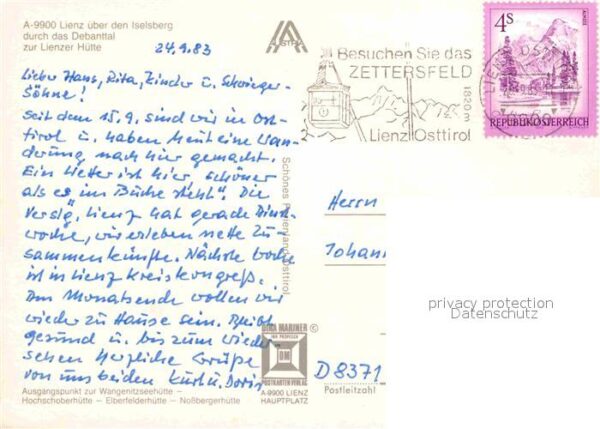 A-9900 Lienz über den Iselsberg
durch das Debanttal
zur Lienzer Hütte
24.9.83
Lieber Hans, Rita, Kinder u. Schwieger-
söhne!
Seit dem 15.9. sind wir in Ost-
tirol u. haben heut eine Wan-
derung nach hier gemacht.
Ein Wetter ist hier, schöner
als es im Buche steht". Die
Lienz hat gerade
woche, wir erleben nette Zu-
sammenkünfte. Nächste Woche
ist in Lienz Kreiskongreß.
Am Monatsende wollen wir
wieder zu Hause sein. Bleibt
gesund u. bis zum Wieder-
sehen herzliche Grüße
von uns beiden Kurt u. Doris
Ausgangspunkt zur Wangenitzseehütte –
Hochschoberhütte – Elberfelderhütte – Noßbergerhütte
Besuchen Sie das
ZETTERSFELD
1820m
Lienz Osttirol
4S
REPUBLIK ÖSTERREICH
Herrn
Johann
privacy protection
Datenschutz
DINA MARINER ©
DM
POSTKARTEN VERLAG
A-9900 LIENZ
HAUPTPLATZ
D 8371
Postleitzahl